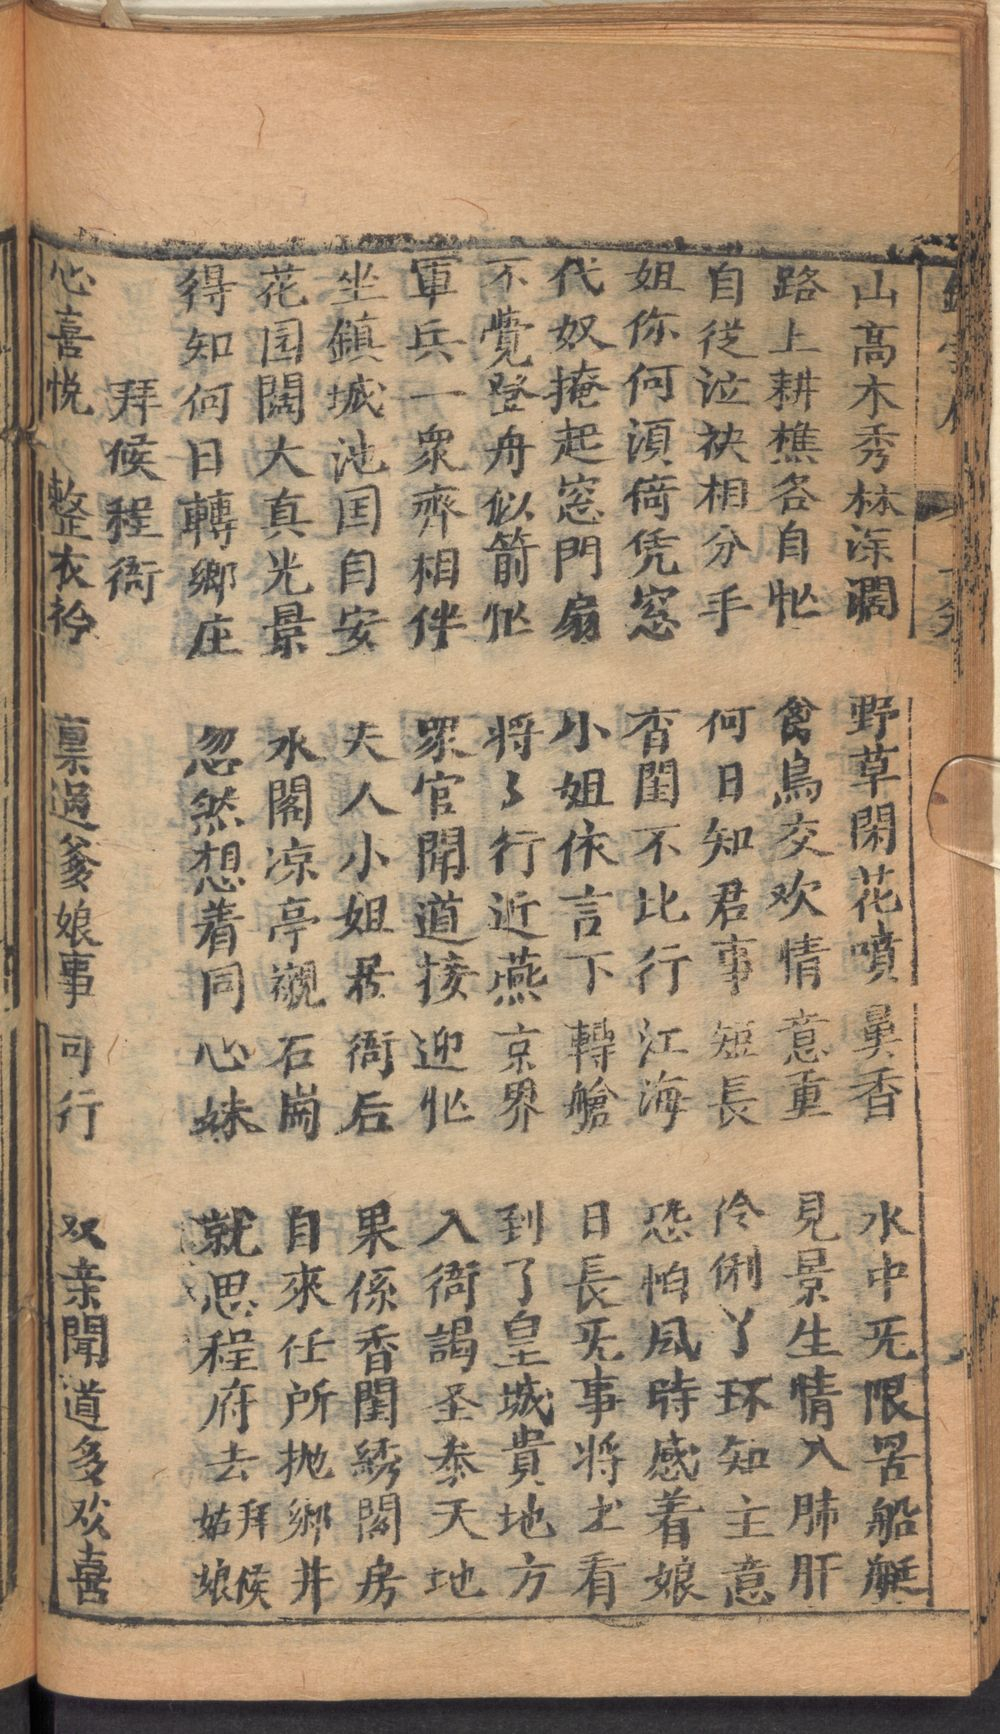 山高木秀林深濶　野草閑花噴鼻香　水中旡限罟船艇
路上耕樵各自忙　禽鳥交欢情意重　見景生情入肺肝
自從泣袂相分手　何日知君事短長　伶俐丫环知主意
姐你何須倚凭窓　香閨不比行江海　恐怕風時感着娘
代奴掩起窓門扇　小姐依言下轉艙　日長旡事将土看
不覺登舟似箭忙　将々行近燕京界　到了皇城貴地方
軍兵一衆齊相伴　眾官聞道接迎忙　入衙謁圣叅天地
坐鎮城池囯自安　夫人小姐居衙后　果係香閨綉閣房
花园闊大真光景　水閣凉亭襯石崗　自來任所抛鄉井
得知何日轉鄉庄　忽然想着同心妹　就思程府去拜候姑娘
拜候程衙
心喜悦　整衣衿　禀過爹娘事可行　双亲聞道多欢喜